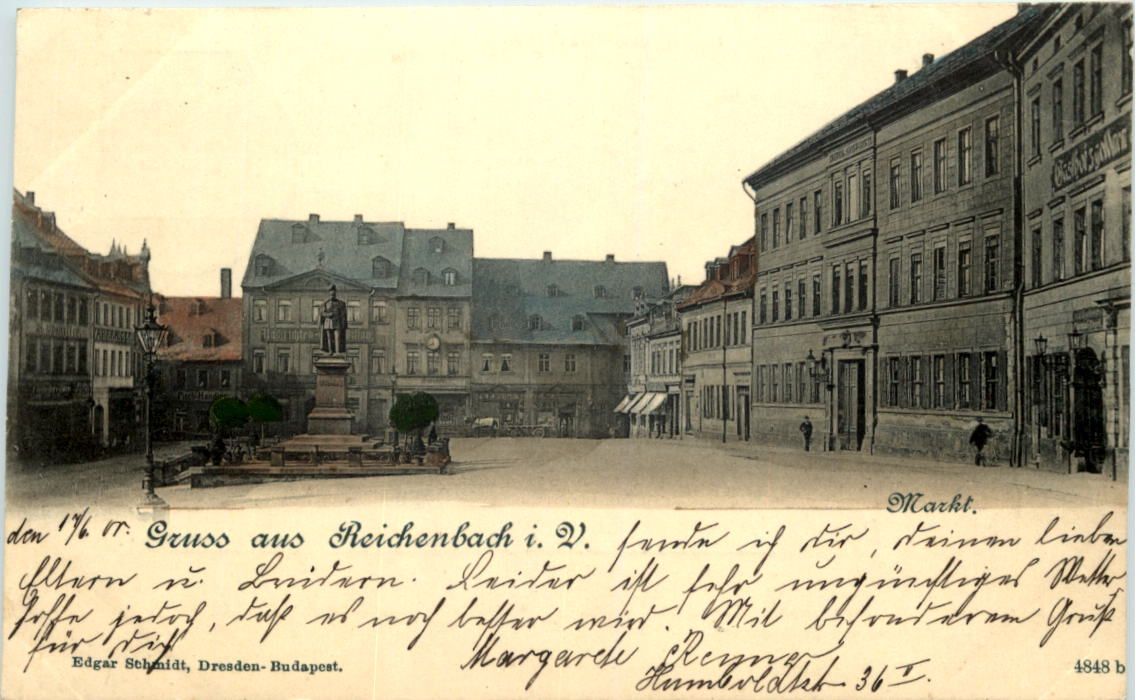 Markt.
den 17/6. 01. Gruss aus Reichenbach i. V. sende ich dir, deinen lieben
Eltern u. Brüdern. Leider ist sehr ungünstiges Wetter,
hoffe jedoch, daß es noch besser wird. Mit besonderem Gruß
für dich
Margarete
Humboldtstr. 36 II.
Edgar Schmidt, Dresden-Budapest.
4848 b